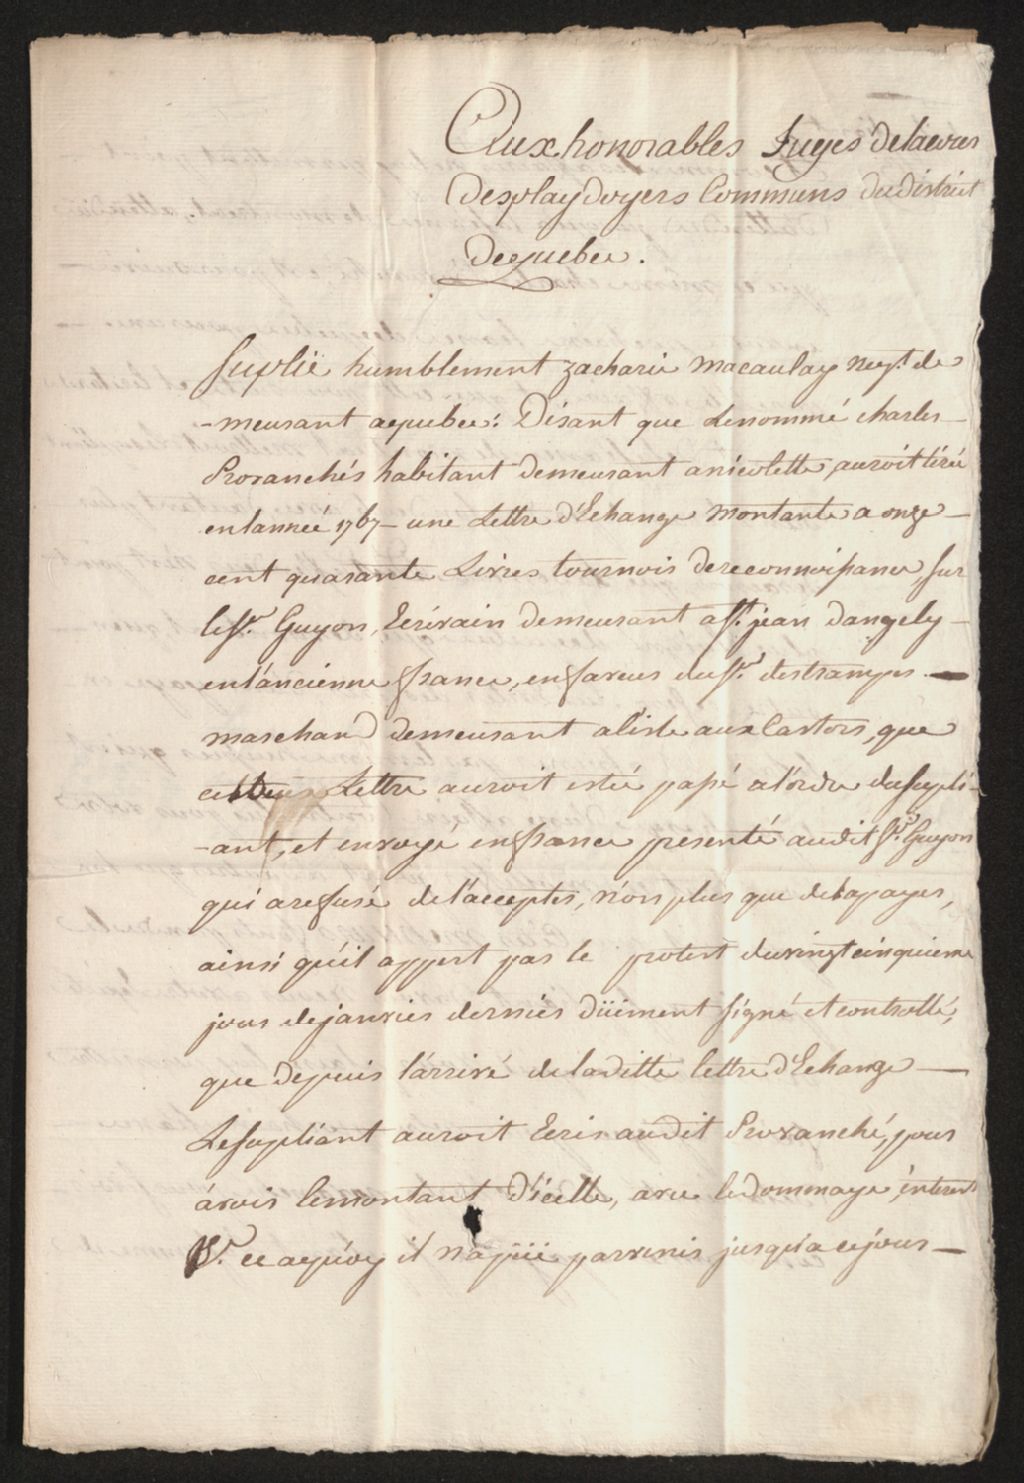 Aux honorables Juges de la cour
des playdoyers Communs du district
de quebec.
Suplië humblement Zacharie Macaulay Negt. de
-meurant a quebec: Disant que Lenommé charles
Provanchés habitant demeurant a nicolette, auroit tiré
en lannée 1767 - une Lettre d'Echange Montante a onze
cent quarante Livres tournois de reconnoissance, sur
le Sr. Guyon, Ecrivain demeurant a St. jean dangely
en l'ancienne france, en faveur du Sr. destramps
marchand demeurant a lisle aux Castors, que
Lettre auroit estée passé a l'ordre du supli-
-ant, et envoyé en france presenté audit Sr. Guyon
qui a refusé de l'accepter, n'on plus que de la payer,
ainsi qu'il appert par le protest du vingt cinquieme
jour de janvier dernier düement signé et controllé,
que depuis l'arrivé de laditte lettre d'Echange
Le supliant auroit Ecris audit Provanché, pour
avoir le montant d'icelle, avec le dommage, interest
ce a quoy il n'a püe parvenir jusqu'a ce jour